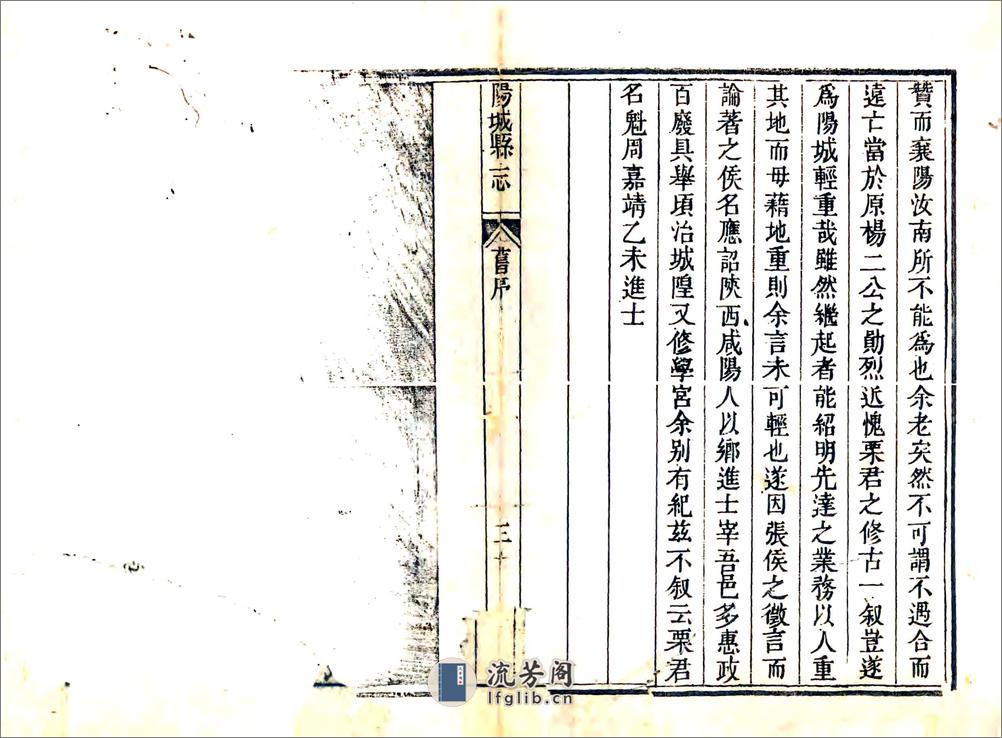 贊而襄陽汝南所不能爲也余老矣然不可謂不遇合而
遠亡當於原楊二公之勛烈近愧栗君之修古一叙豈遂
爲陽城輕重哉雖然繼起者能紹明先達之業務以人重
其地而毋藉地重則余言未可輕也遂因張侯之徵言而
論著之侯名應詔陝西咸陽人以鄉進士宰吾邑多惠政
百廢具舉頃治城隍又修學宮余别有紀兹不叙云栗君
名魁周嘉靖乙未進士
陽城縣志
舊序
三
流芳阁
lfglib.cn